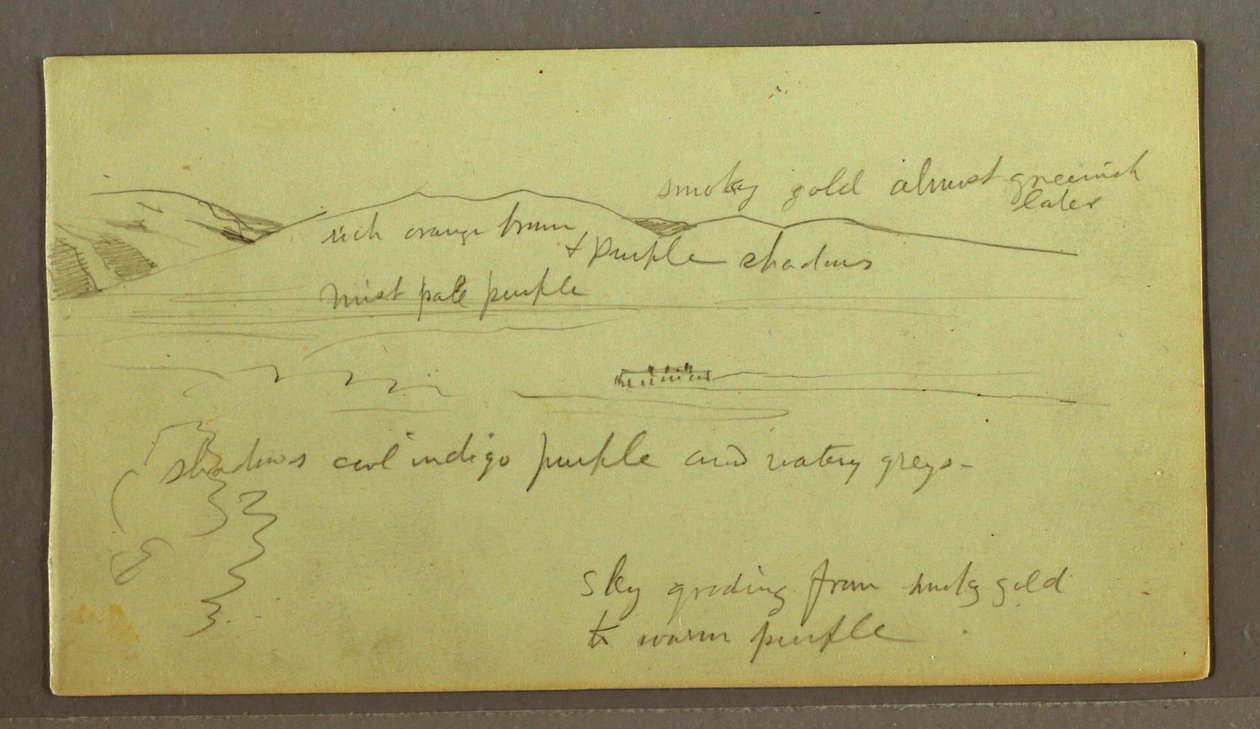 smoky gold almost greenish
later
rich orange brown
& purple shadows
mist pale purple
shadows cool indigo purple and watery greys -
sky grading from smoky gold
to warm purple